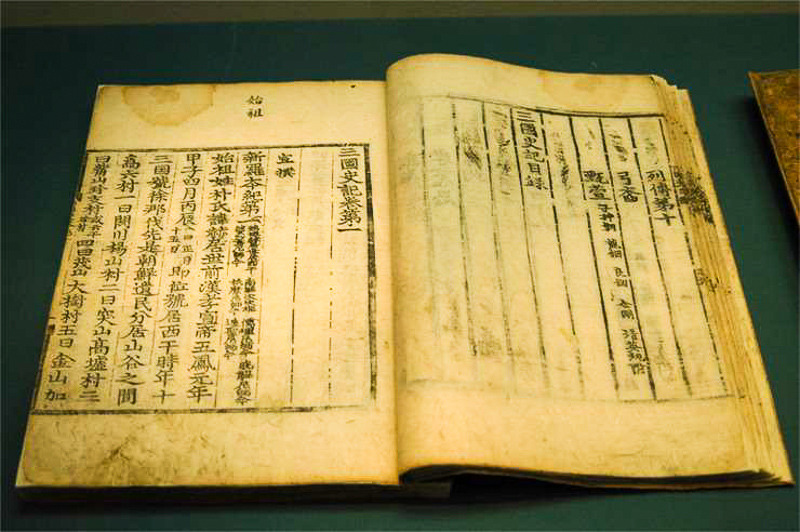 列傳第十
弓裔
甄萱
三國史記目錄
始祖
三國史記卷第一
宣撰
新羅本紀第一
始祖姓朴氏諱赫居世前漢孝宣帝五鳳元年
甲子四月丙辰一曰正月十五日即位號居西干時年十
三國號徐那伐先是朝鮮遺民分居山谷之間
爲六村一曰閼川楊山村二曰突山高墟村三
曰觜山珍支村四曰茂山大樹村五曰金山加